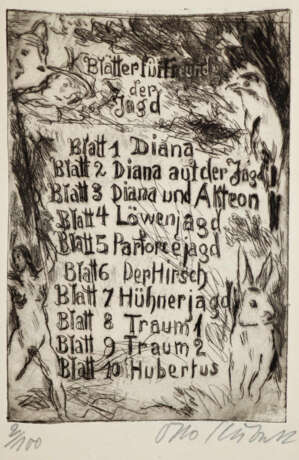 Blätter für Freunde
der
Jagd
Blatt 1 Diana
Blatt 2 Diana auf der Jagd
Blatt 3 Diana und Akteon
Blatt 4 Löwenjagd
Blatt 5 Parforcejagd
Blatt 6 Der Hirsch
Blatt 7 Hühnerjagd
Blatt 8 Traum 1
Blatt 9 Traum 2
Blatt 10 Hubertus
/100 Otto